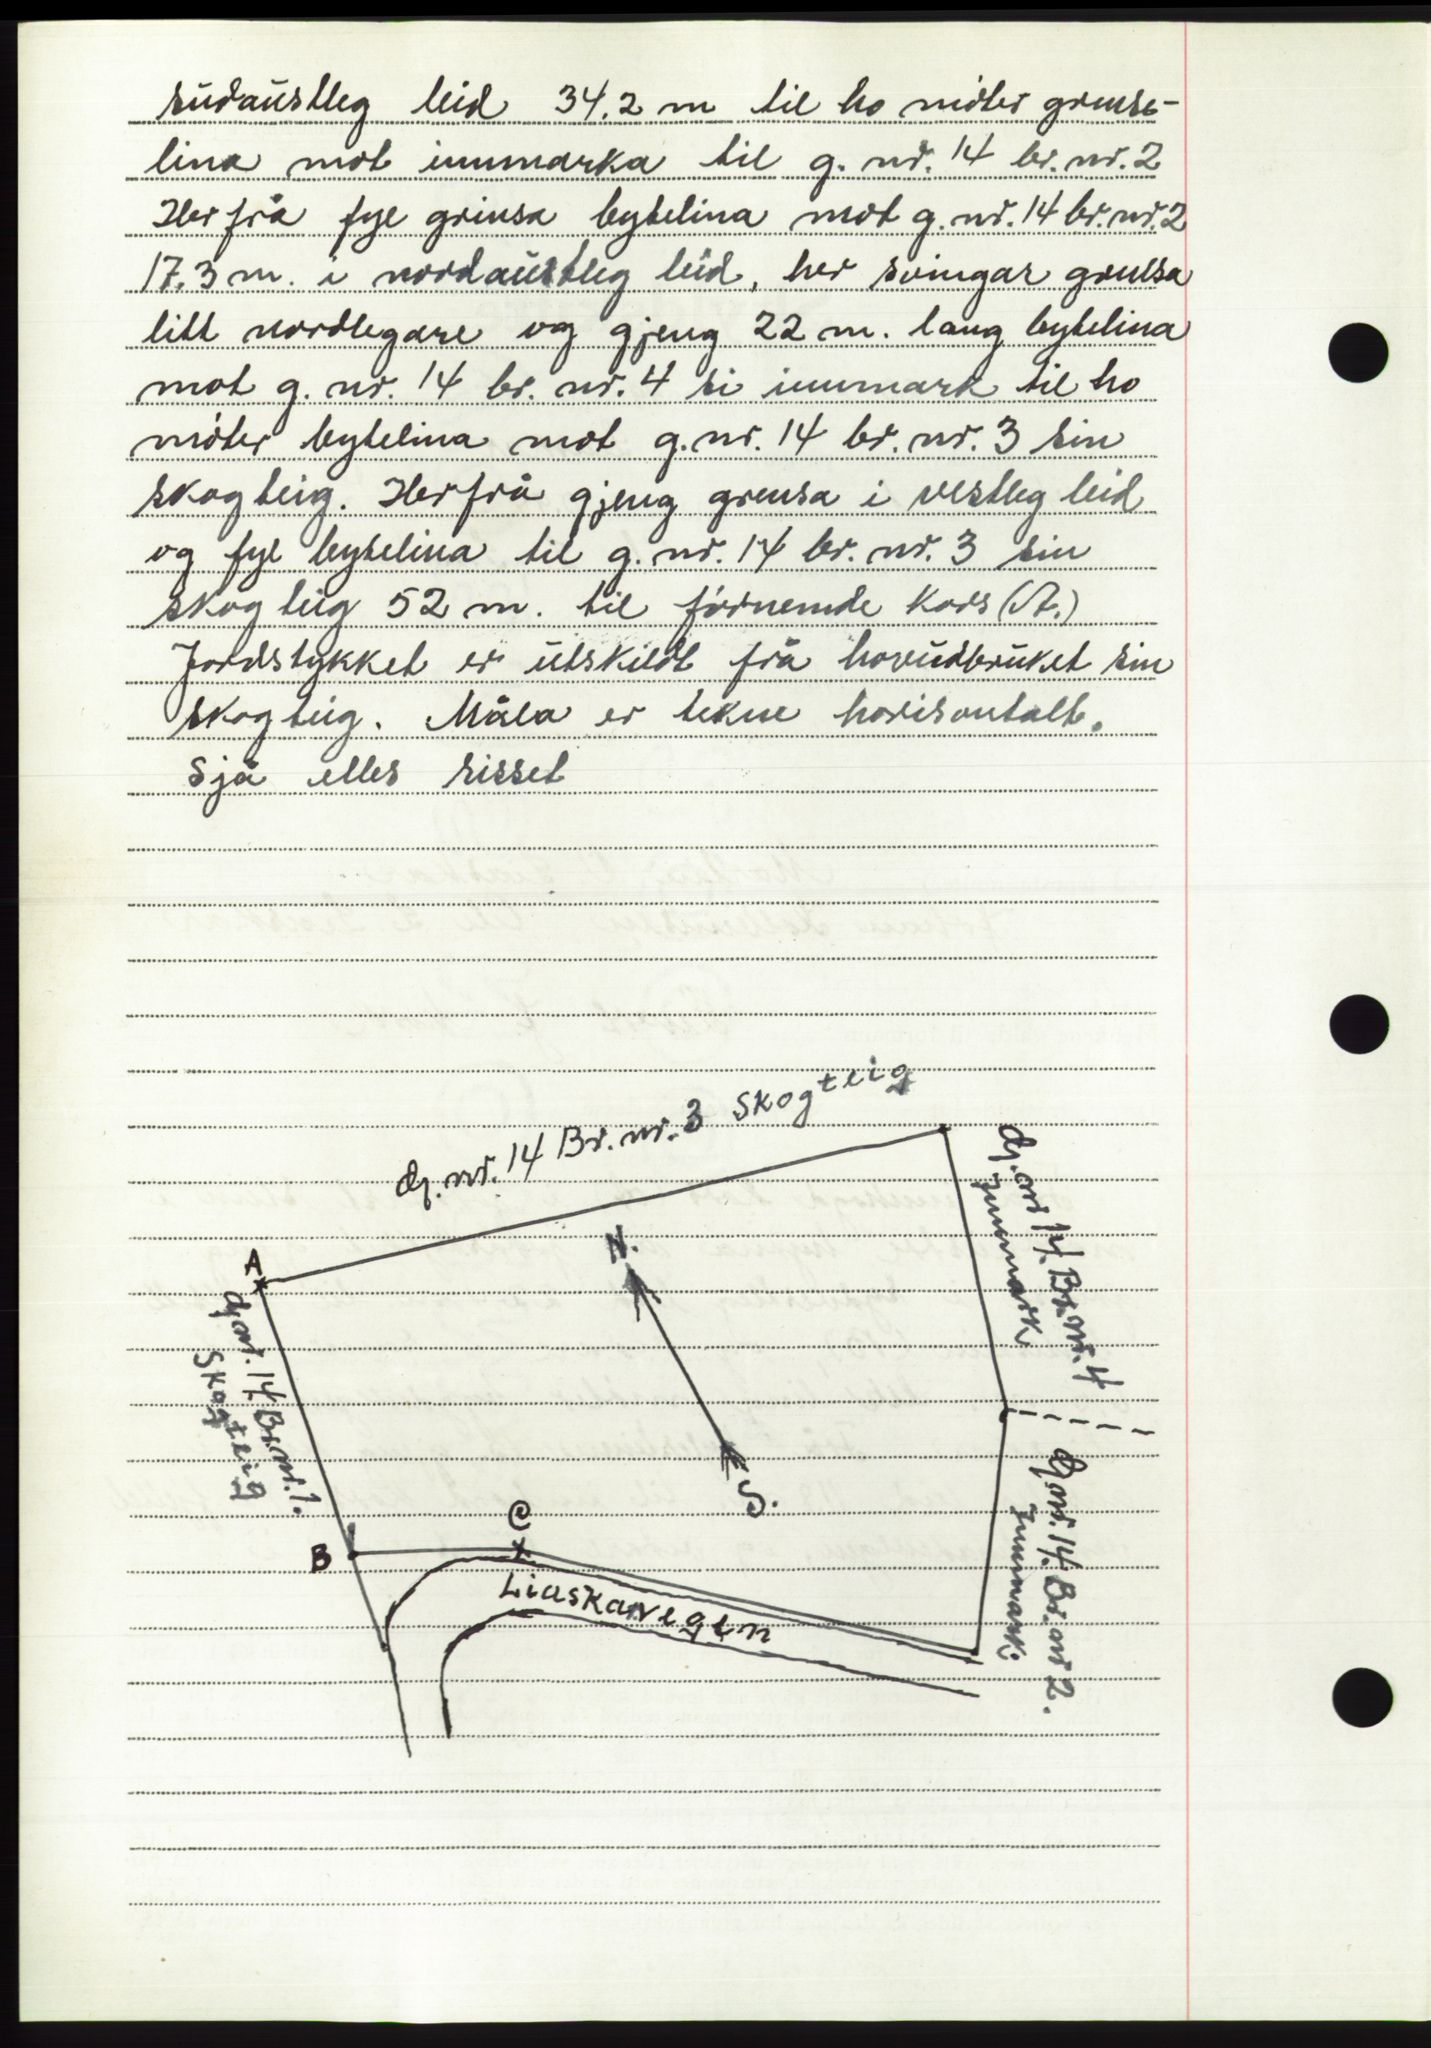 sudaustleg leid 34.2 m til ho möter grense-
lina mot innmarka til g. nr. 14 br. nr. 2
Herfrå fyl grensa bytelina mot g. nr. 14 br. nr. 2
17.3 m. i nordaustleg leid, her svingar grensa
litt nordlegare og gjeng 22 m. lang bytelina
mot g. nr. 14 br. nr. 4 si innmark til ho
möter bytelina mot g. nr. 14 br. nr. 3 sin
skogteig. Herfrå gjeng grensa i vestleg leid
og fyl bytelina til g. nr. 14 br. nr. 3 sin
skogteig 52 m. til förnemde kors (A.)
Jordstykket er utskildt frå hovudbruket sin
skogteig. Måla er tekne horisontalt.
Sjå elles risset
G. nr. 14 Br. nr. 3 Skogteig
G. nr 14. Br. nr. 4
Innmark
N.
A
G. nr. 14. Br. nr. 1.
Skogteig
S.
G. nr. 14. Br. nr 2.
Innmark.
C
B
Liaskarvegen